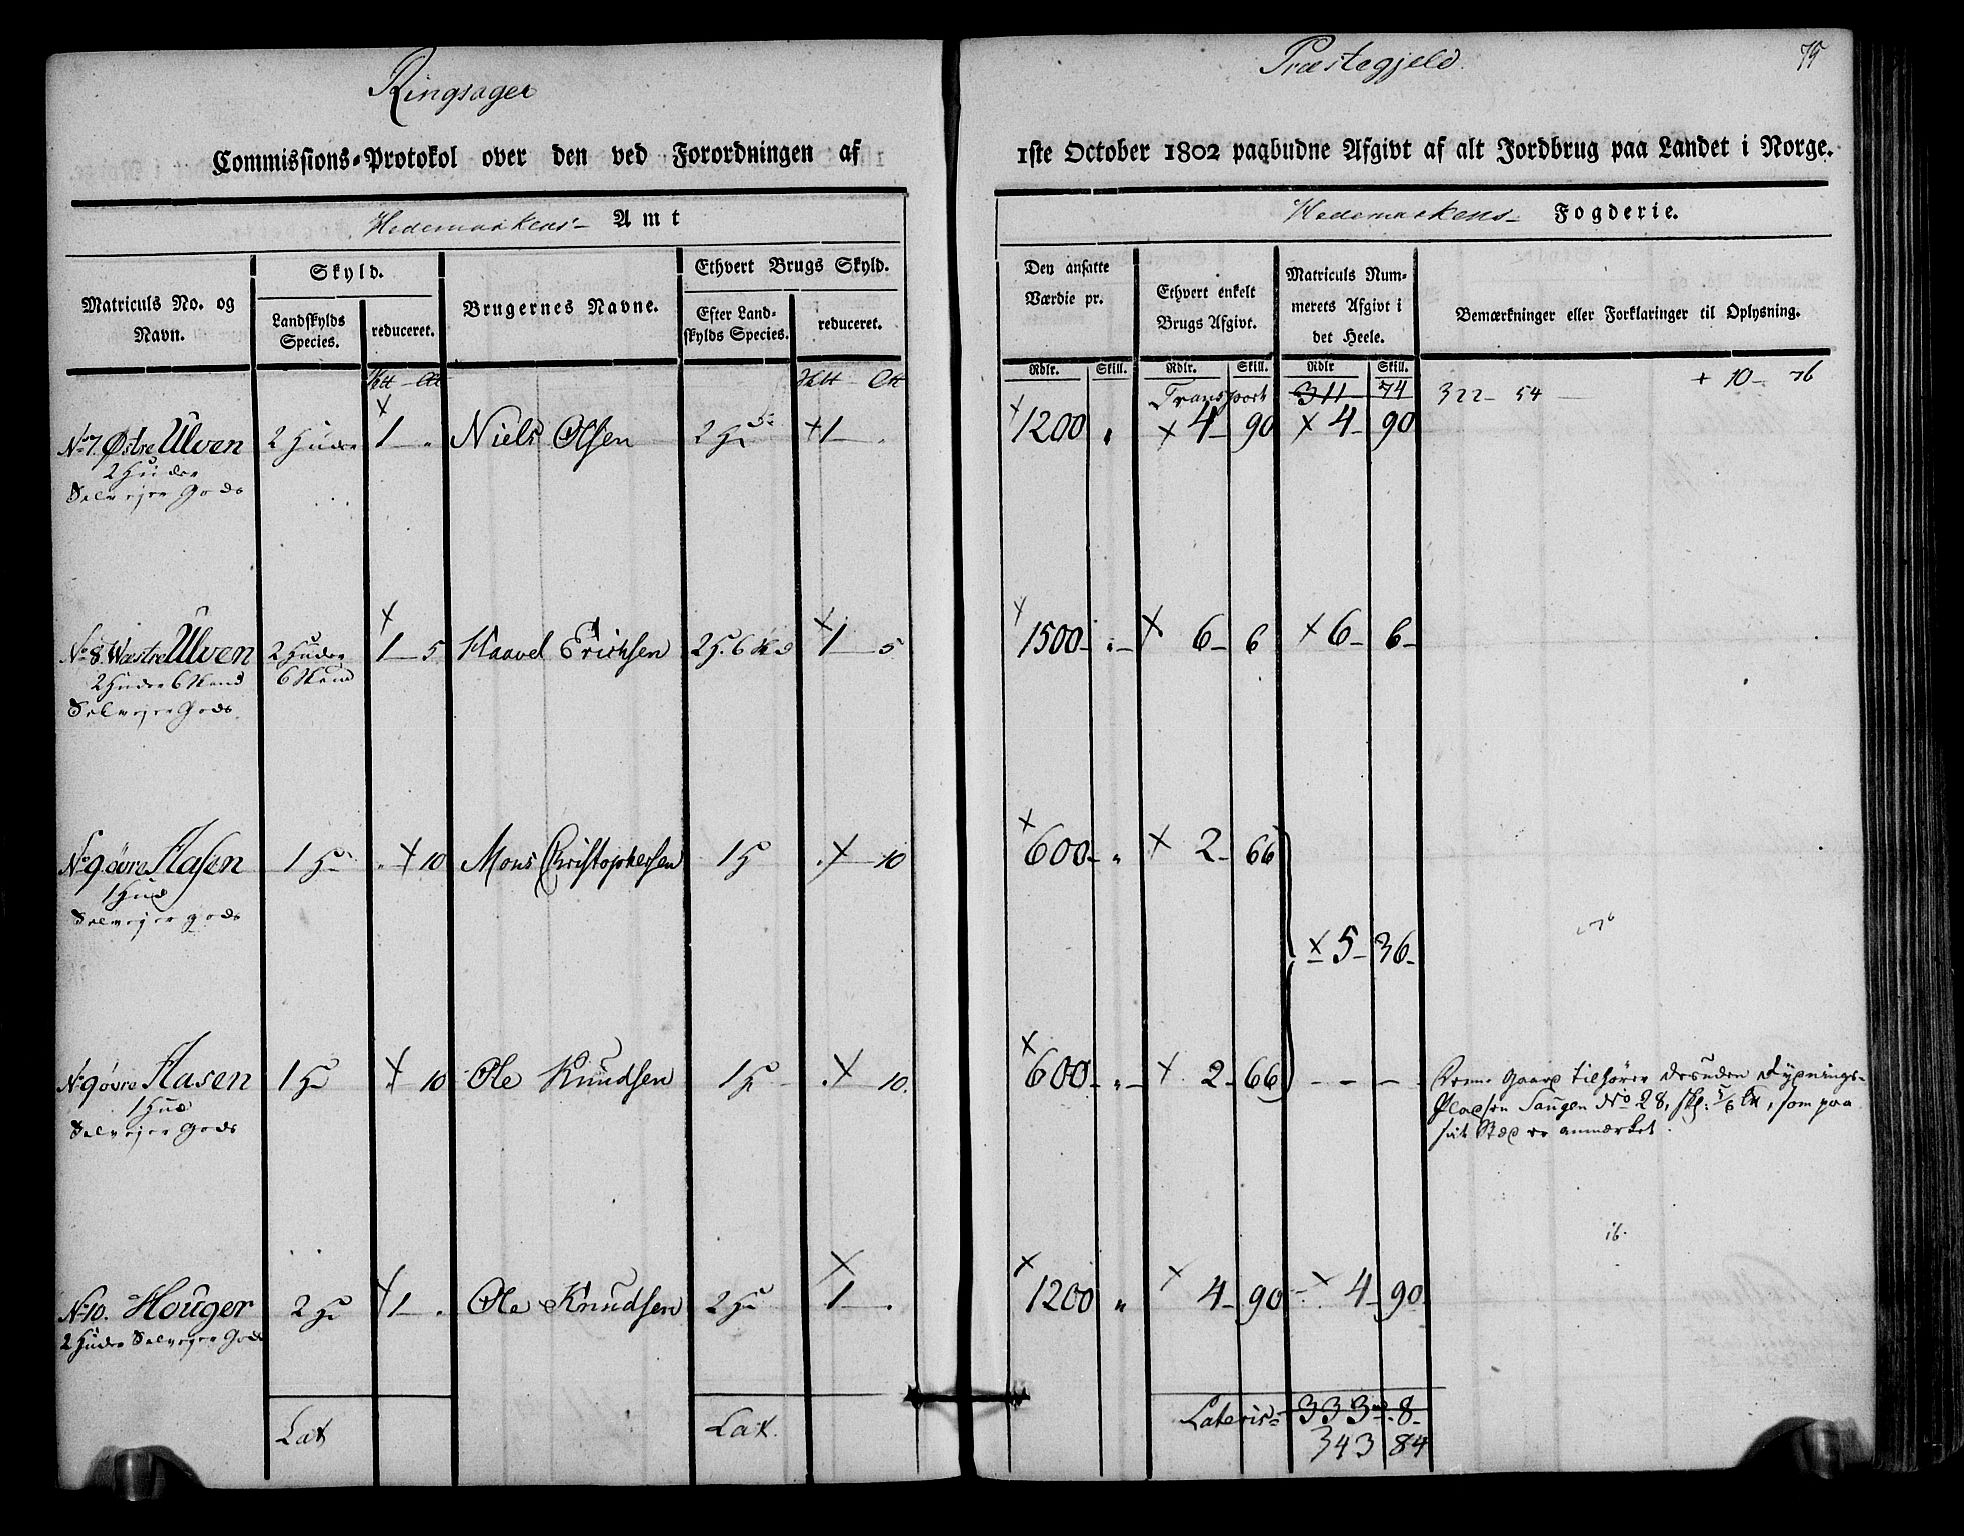 Ringsager
Præstegjeld
75
Commissions-Protokol over den ved Forordningen af
1ste October 1802 paabudne Afgivt af alt Jordbrug paa Landet i Norge.
Hedemarkens- Amt
Hedemarkens- Fogderie.
Matriculs No. og Navn.
Skyld.
Landskylds Species.
reduceret.
Brugernes Navne.
Ethvert Brugs Skyld.
Efter Landskylds Species.
reduceret.
Den ansatte Værdie pr.
Ethvert enkelt Brugs Afgivt.
Matriculs Nummerets Afgivt i det Heele.
Bemærkninger eller Forklaringer til Oplysning.
Rdlr. Skill. Rdlr. Skill. Rdlr Skill.
Transport 311 74 322 - 54 + 10 - 76
No 7. Østre Ulven 2 Huder 1 - " Niels Olsen 2 Hde 1 - " 1200 " 4 - 90 4 - 90
2 Huder
Selvejer Gods
No 8. Wæstre Ulven 2 Huder 1 - 5 Haavel Erichsen 2 H. 6 Skd 1 5 1500 - " - 6 - 6 6 - 6 -
2 Huder 6 Skind 6 Skind
Selvejer Gods
No 9 øvre Aasen 1 Hu " 10 Mons Christophersen 1 H " 10 600 - " 2 - 66
1 Hud
Selvejer gods
5 - 36 -
No 9 øvre Aasen 1 Hu " 10 Ole Knudsen 1 H - " 10. 600 - " - 2 - 66 - - -
1 Hud
Selvejer Gods
Denne Gaard tilhører desuden Rydnings-
Pladsen Saugen No 28, skl: 5/6 Lt, som paa
sit Sted er anmærket.
16.
No 10. Houger 2 Hu 1 - " Ole Knudsen 2 Hu 1 - " 1200 " 4 - 90 4 - 90
2 Huder Selvejer Gods
Lat Lat. Lateris - 333 - 8 -
343 84